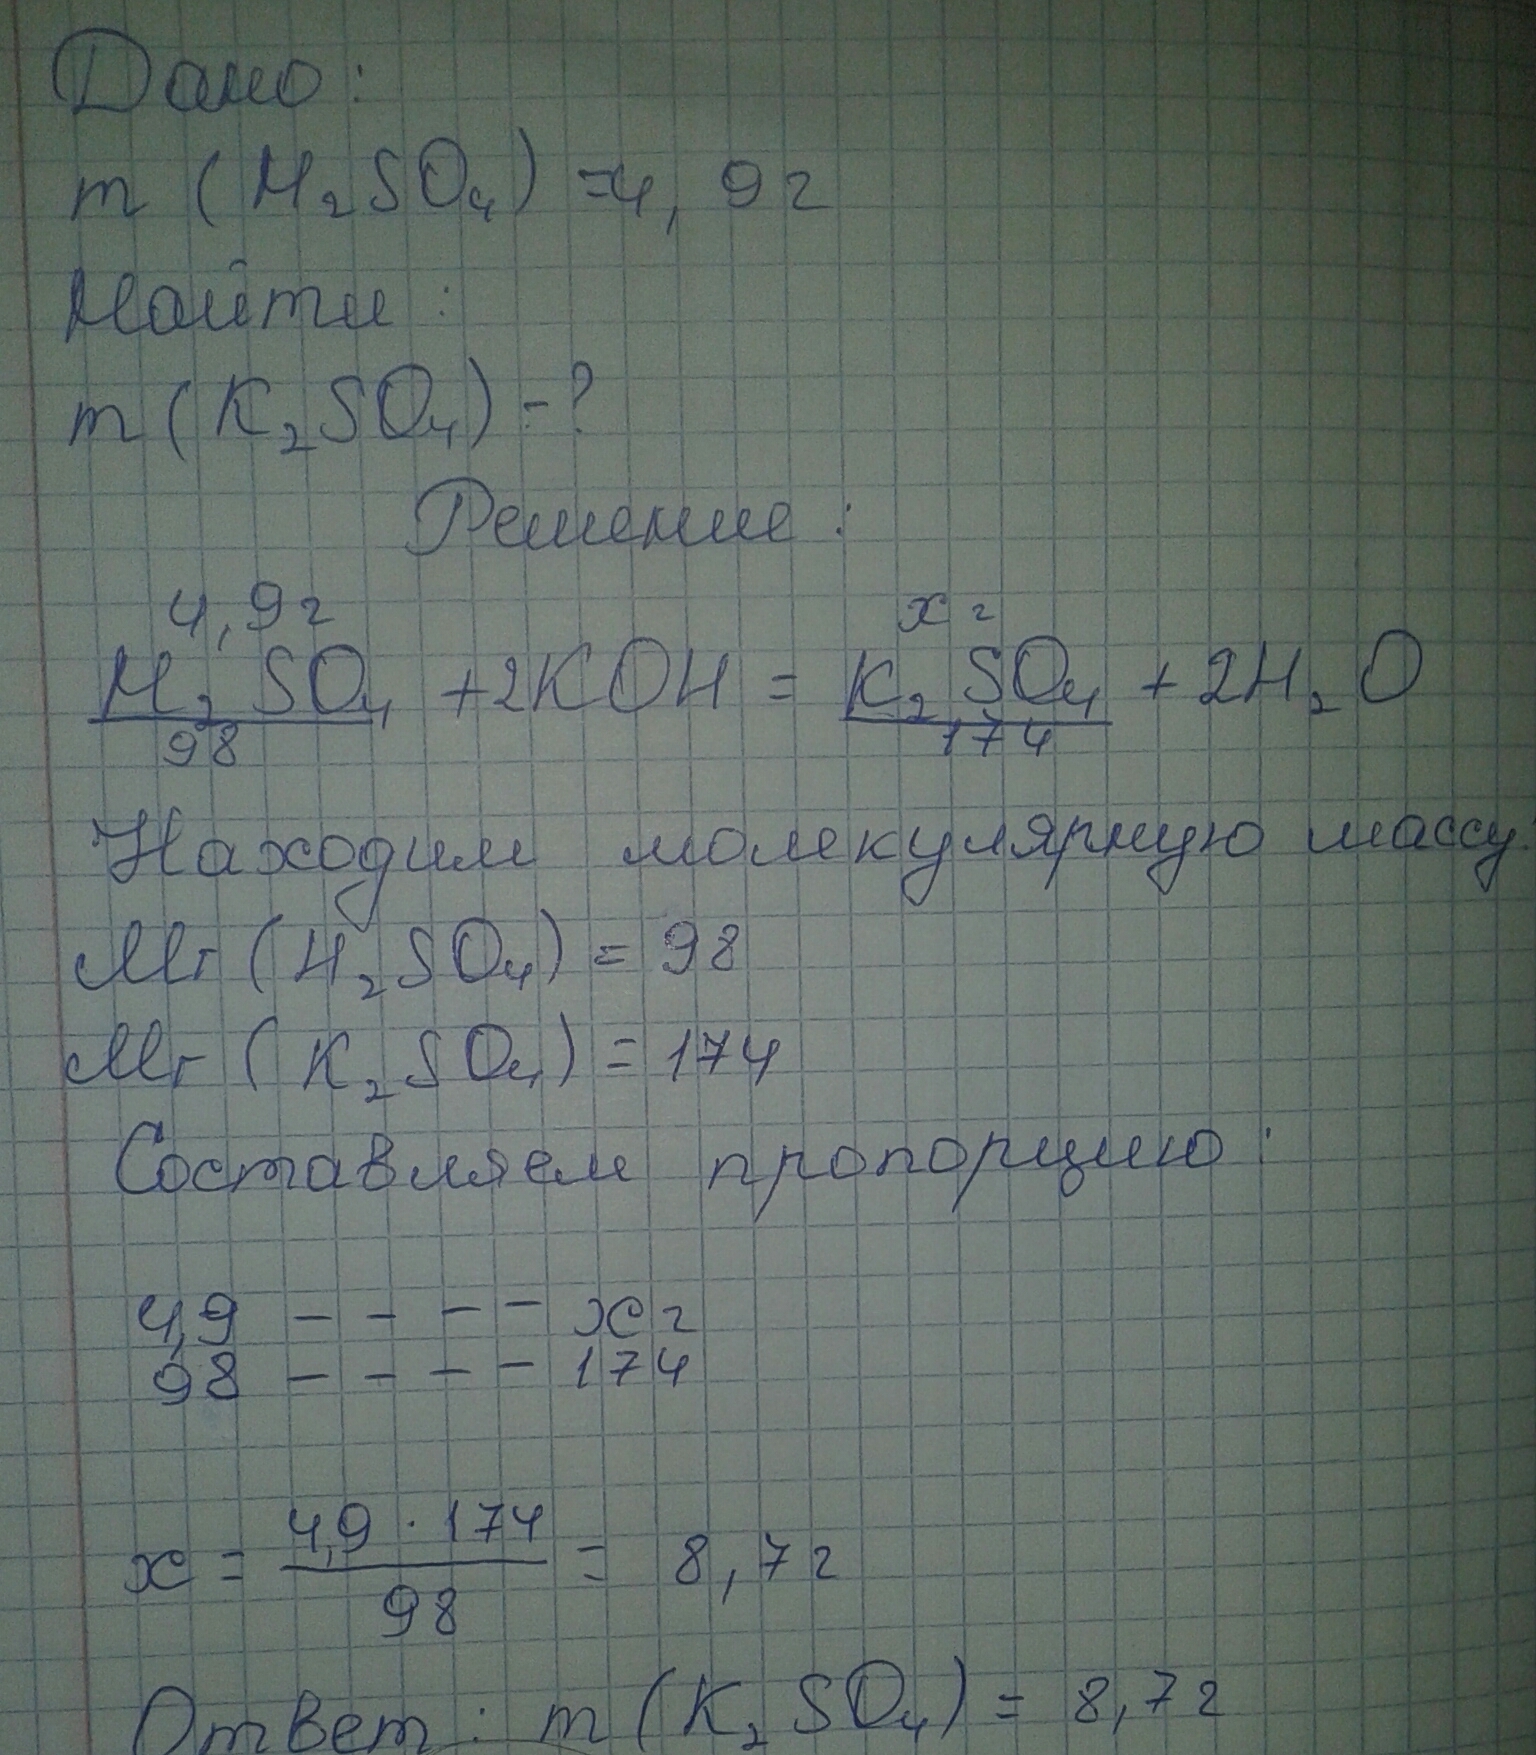 Дано:
m (H₂SO₄) = 4,9 г
Найти:
m (K₂SO₄) - ?
Решение:
4,9 г x г
H₂SO₄ + 2KOH = K₂SO₄ + 2H₂O
98 174
Находим молекулярную массу:
Mr (H₂SO₄) = 98
Mr (K₂SO₄) = 174
Составляем пропорцию:
4,9 - - - - x г
98 - - - - 174
4,9 · 174
x = = 8,7 г
98
Ответ: m (K₂SO₄) = 8,7 г